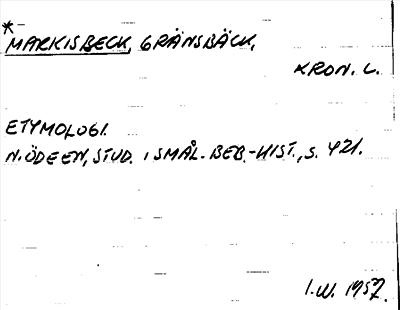 *
MARKISBECK, GRÄNSBÄCK,
KRON. L.
ETYMOLOGI.
N. ÖDEEN, STUD. I SMÅL. BEB.-HIST., S. 421.
I.W. 1957.